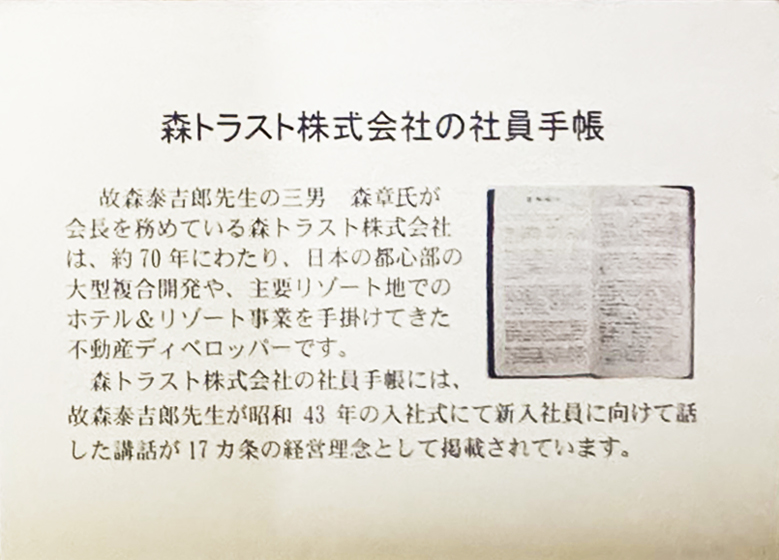 森トラスト株式会社の社員手帳
故森泰吉郎先生の三男　森章氏が
会長を務めている森トラスト株式会社
は、約70年にわたり、日本の都心部の
大型複合開発や、主要リゾート地での
ホテル＆リゾート事業を手掛けてきた
不動産ディベロッパーです。
森トラスト株式会社の社員手帳には、
故森泰吉郎先生が昭和 43 年の入社式にて新入社員に向けて話
した講話が17カ条の経営理念として掲載されています。